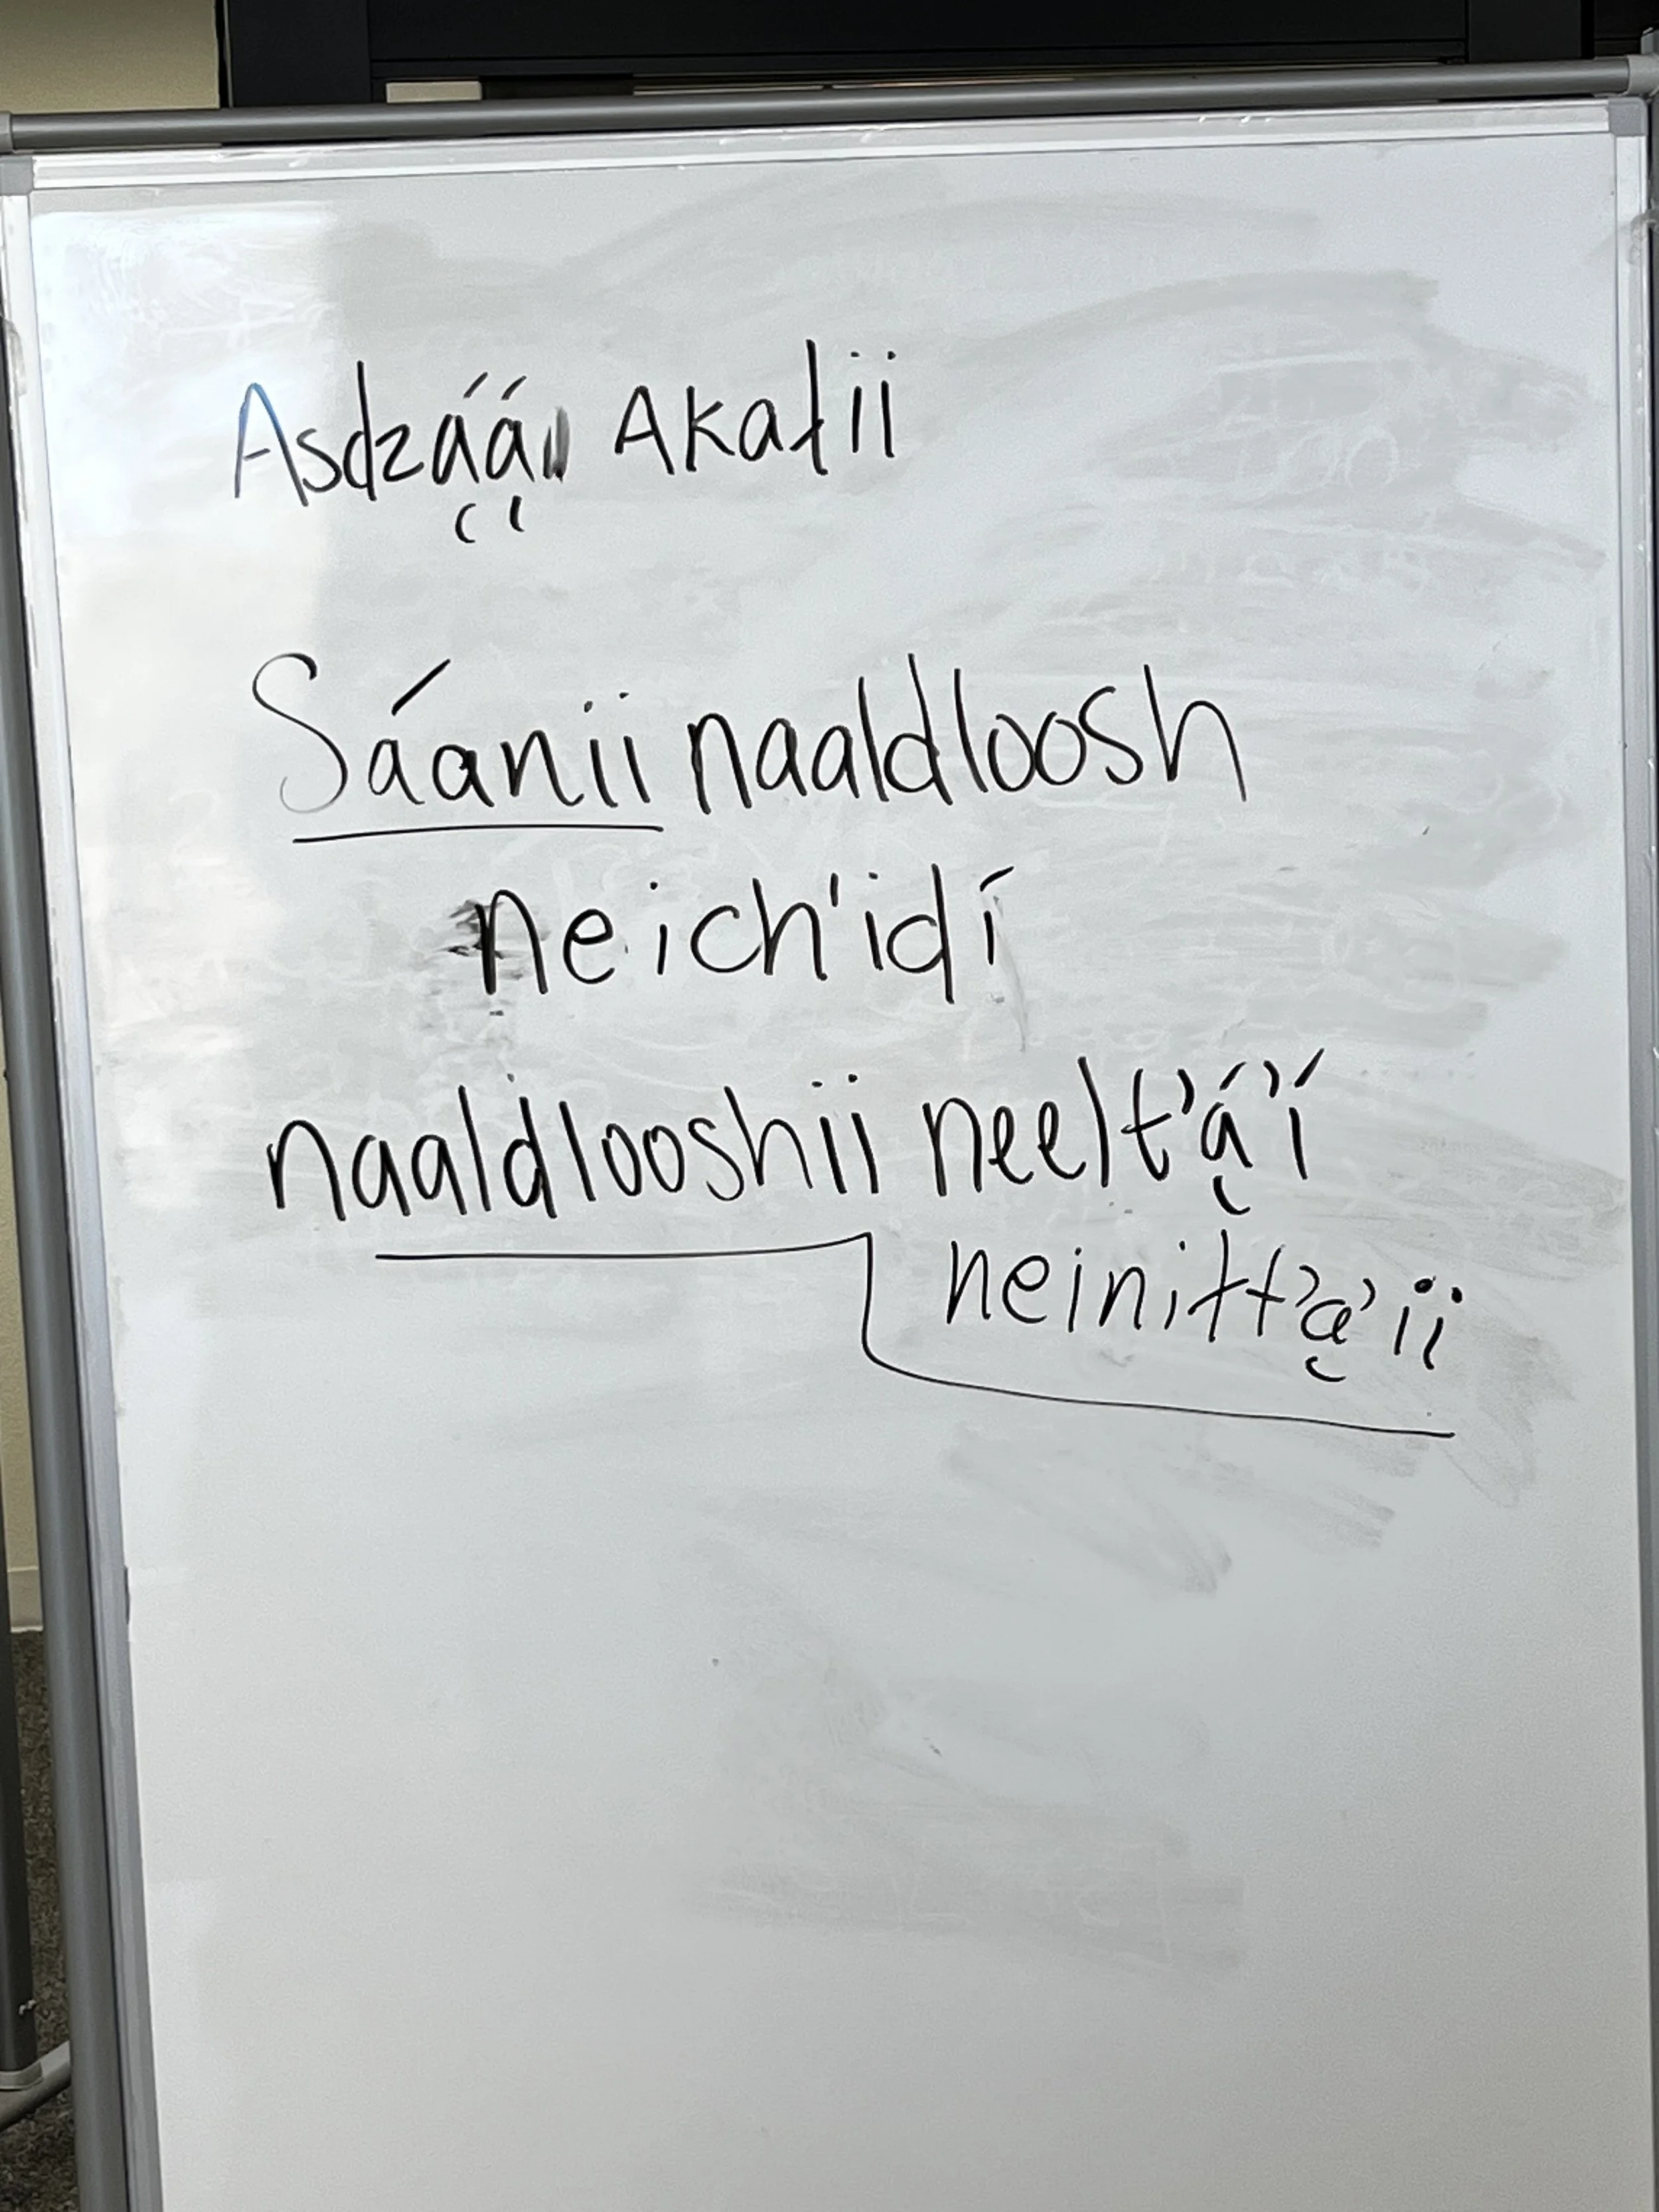 Asdzą́ą́ Akałii
Sáanii naaldloosh
neich'idí
naaldlooshii neelt'ą́'í
neiniłt'ą'ii